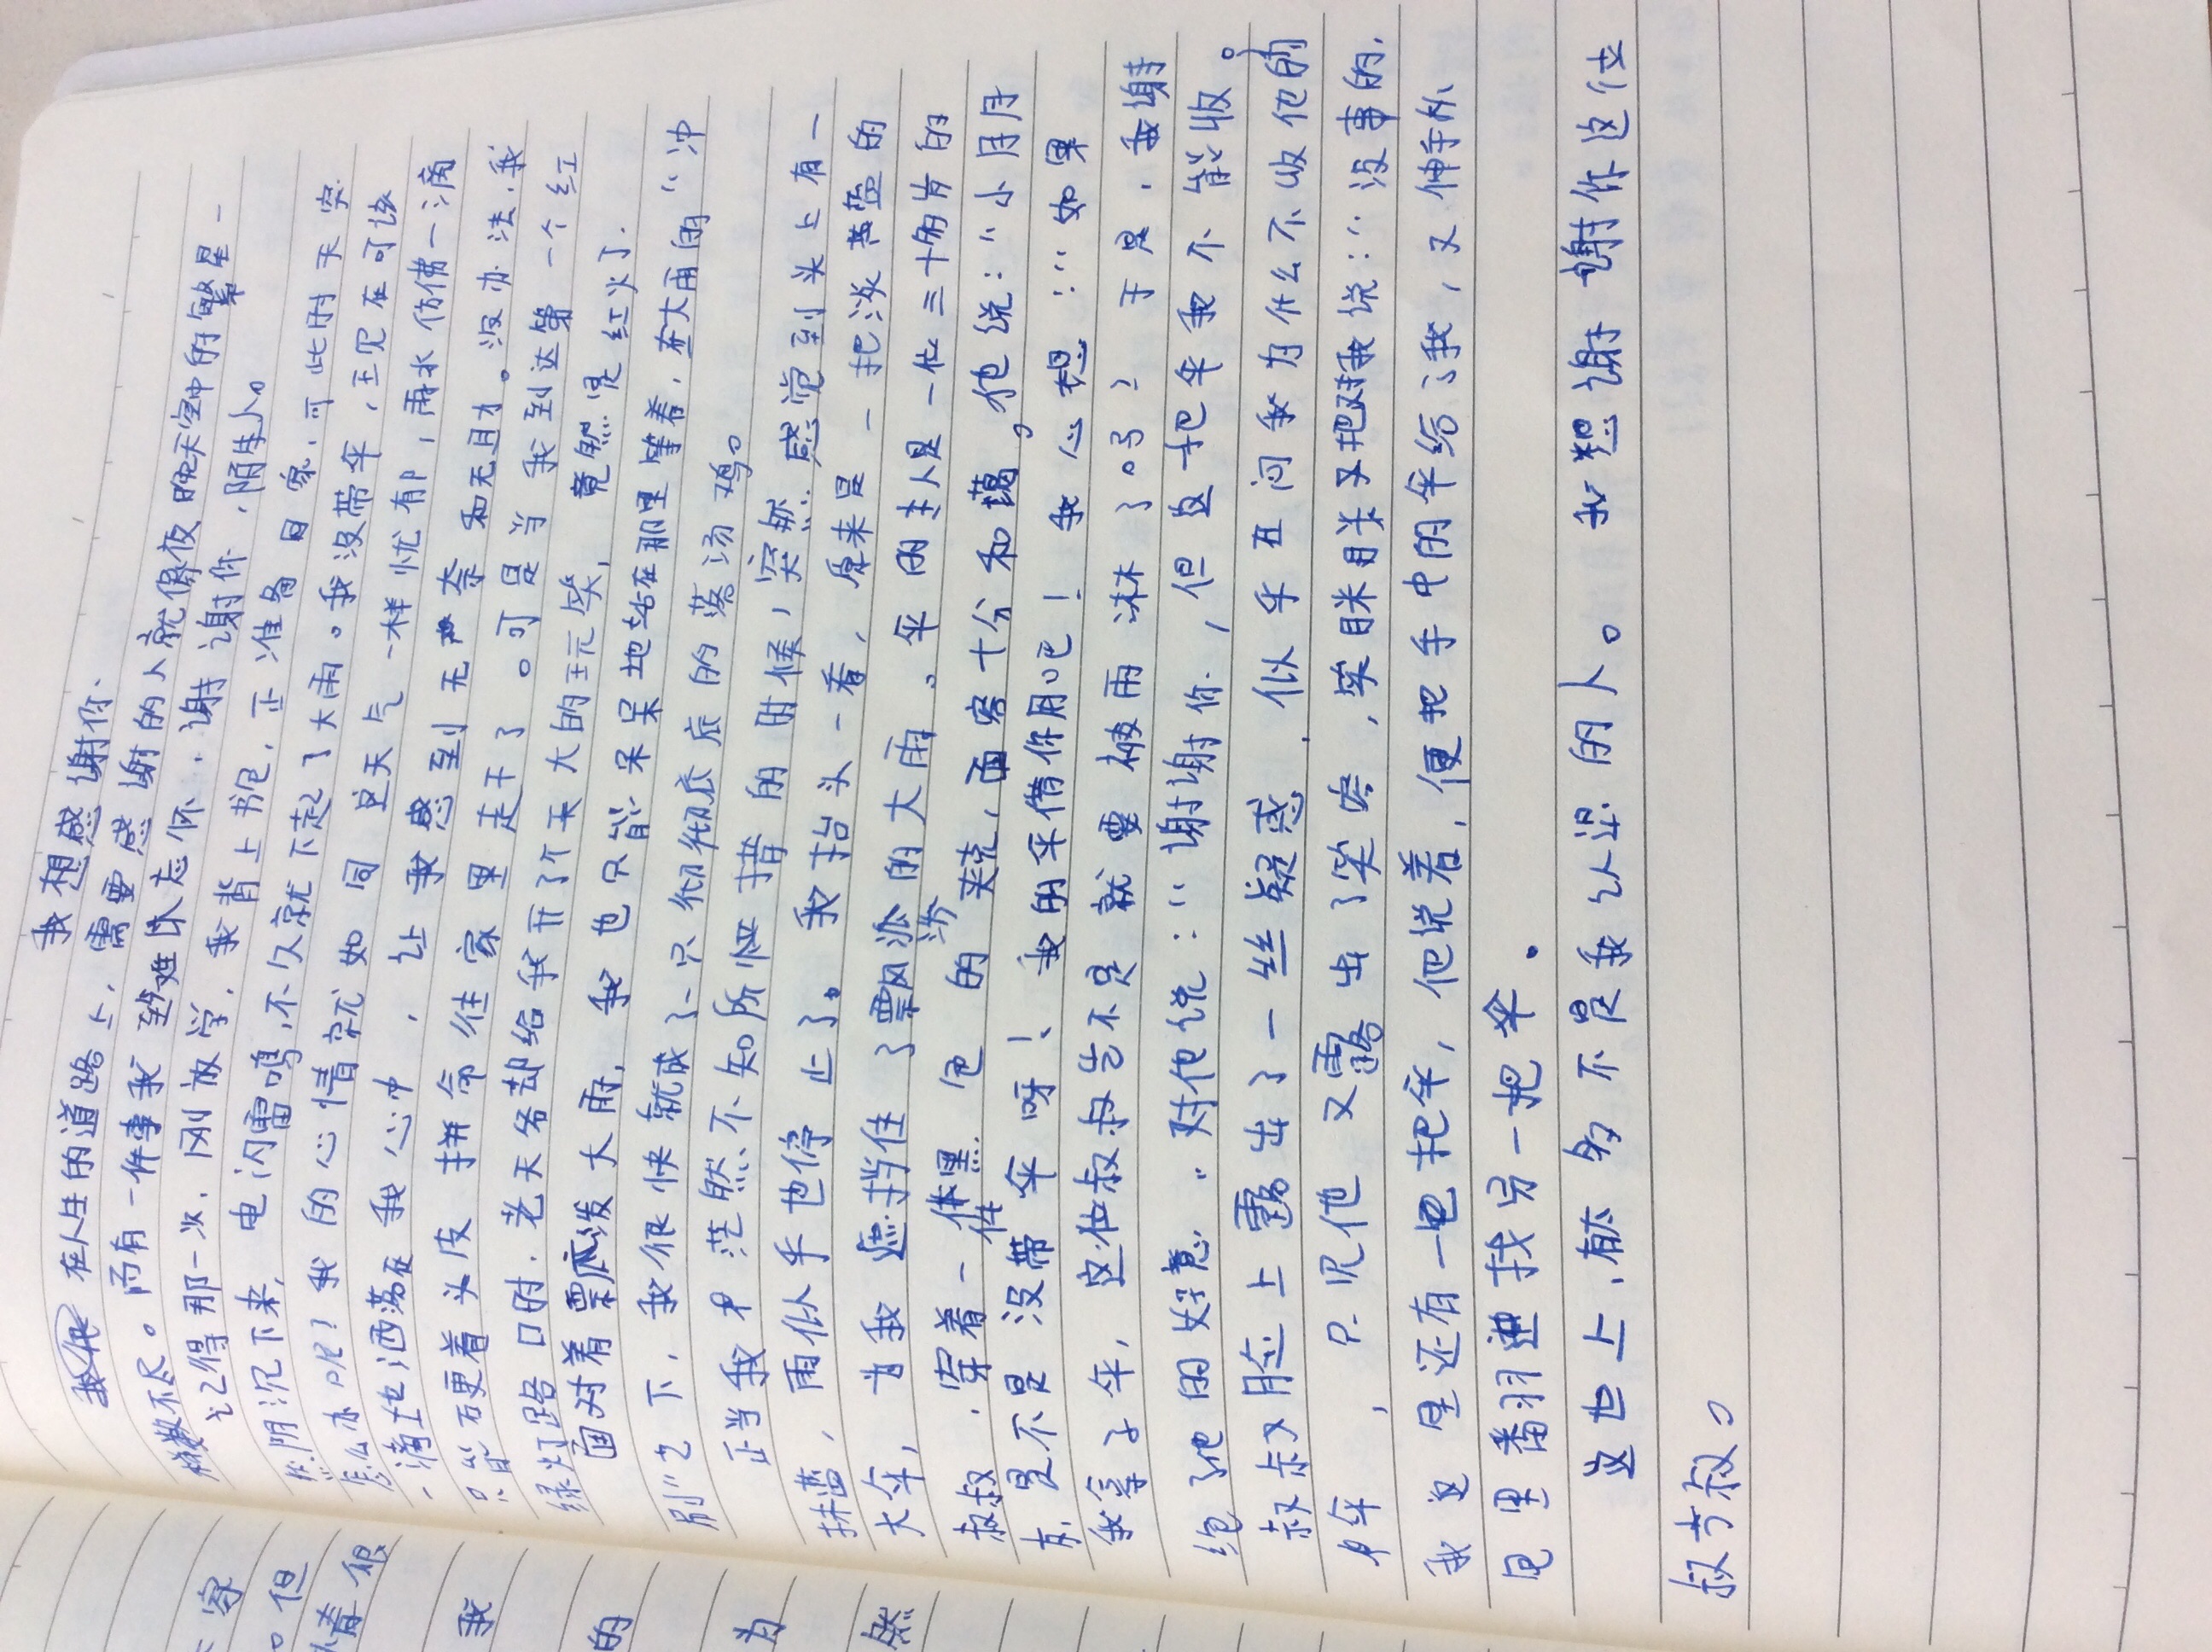 我想感谢你、
在人生的道路上，需要感谢的人就像夜晚天空中的繁星一
样数不尽。而有一件事我至难以忘怀．谢谢你．陌生人。
记得那一次．刚放学，我背上书包，正准备回家．可此时天空
阴沉下来，电闪雷鸣,不久就下起了大雨。我没带伞，现在可该
怎么办呢？我的心情就如同这天气一样忧郁，雨水仿佛一滴
一滴地洒落在我心中，让我感到无奈和无助。没办法．我
只能硬着头皮拼命往家里走干了。可是当我到达第一个红
绿灯路口时．老天爷却给我开了个天大的玩笑，竟然是红火了．
面对着瓢泼大雨，我也只能呆呆地站在那里等着．在大雨的“冲
刷”之下．我很快就成了一只彻彻底底的落汤鸡。
正当我才茫然不知所措的时候，突然．感觉到头上有一
抹蓝，雨似乎也停止了。我抬头一看，原来是一把淡蓝的
大伞，为我遮挡住了飘泼的大雨。伞的主人是一位三十多岁的
叔叔．穿着一件黑色的夹克，面容十分和蔼。他说：“小朋
友．是不是没带伞呀！我的伞借你用吧！我心想：“如果
我拿了伞，这位叔叔岂不是就要被雨淋了吗？于是．我谢
绝了他的好意．对他说：“谢谢你．，但这把伞我不能收。
叔叔脸上露出了一丝疑惑．似乎在问我为什么不收他的
伞，只见他又露出了笑容，笑眯眯又对我说：“没事的．
我这里还有一把伞，他说着．便把手中的伞给了我，又伸手从
包里翻找另一把伞．
这世上．有太多不是我认识的人。我想谢谢你这位
叔叔。
家
但
着很
我
的
为
然